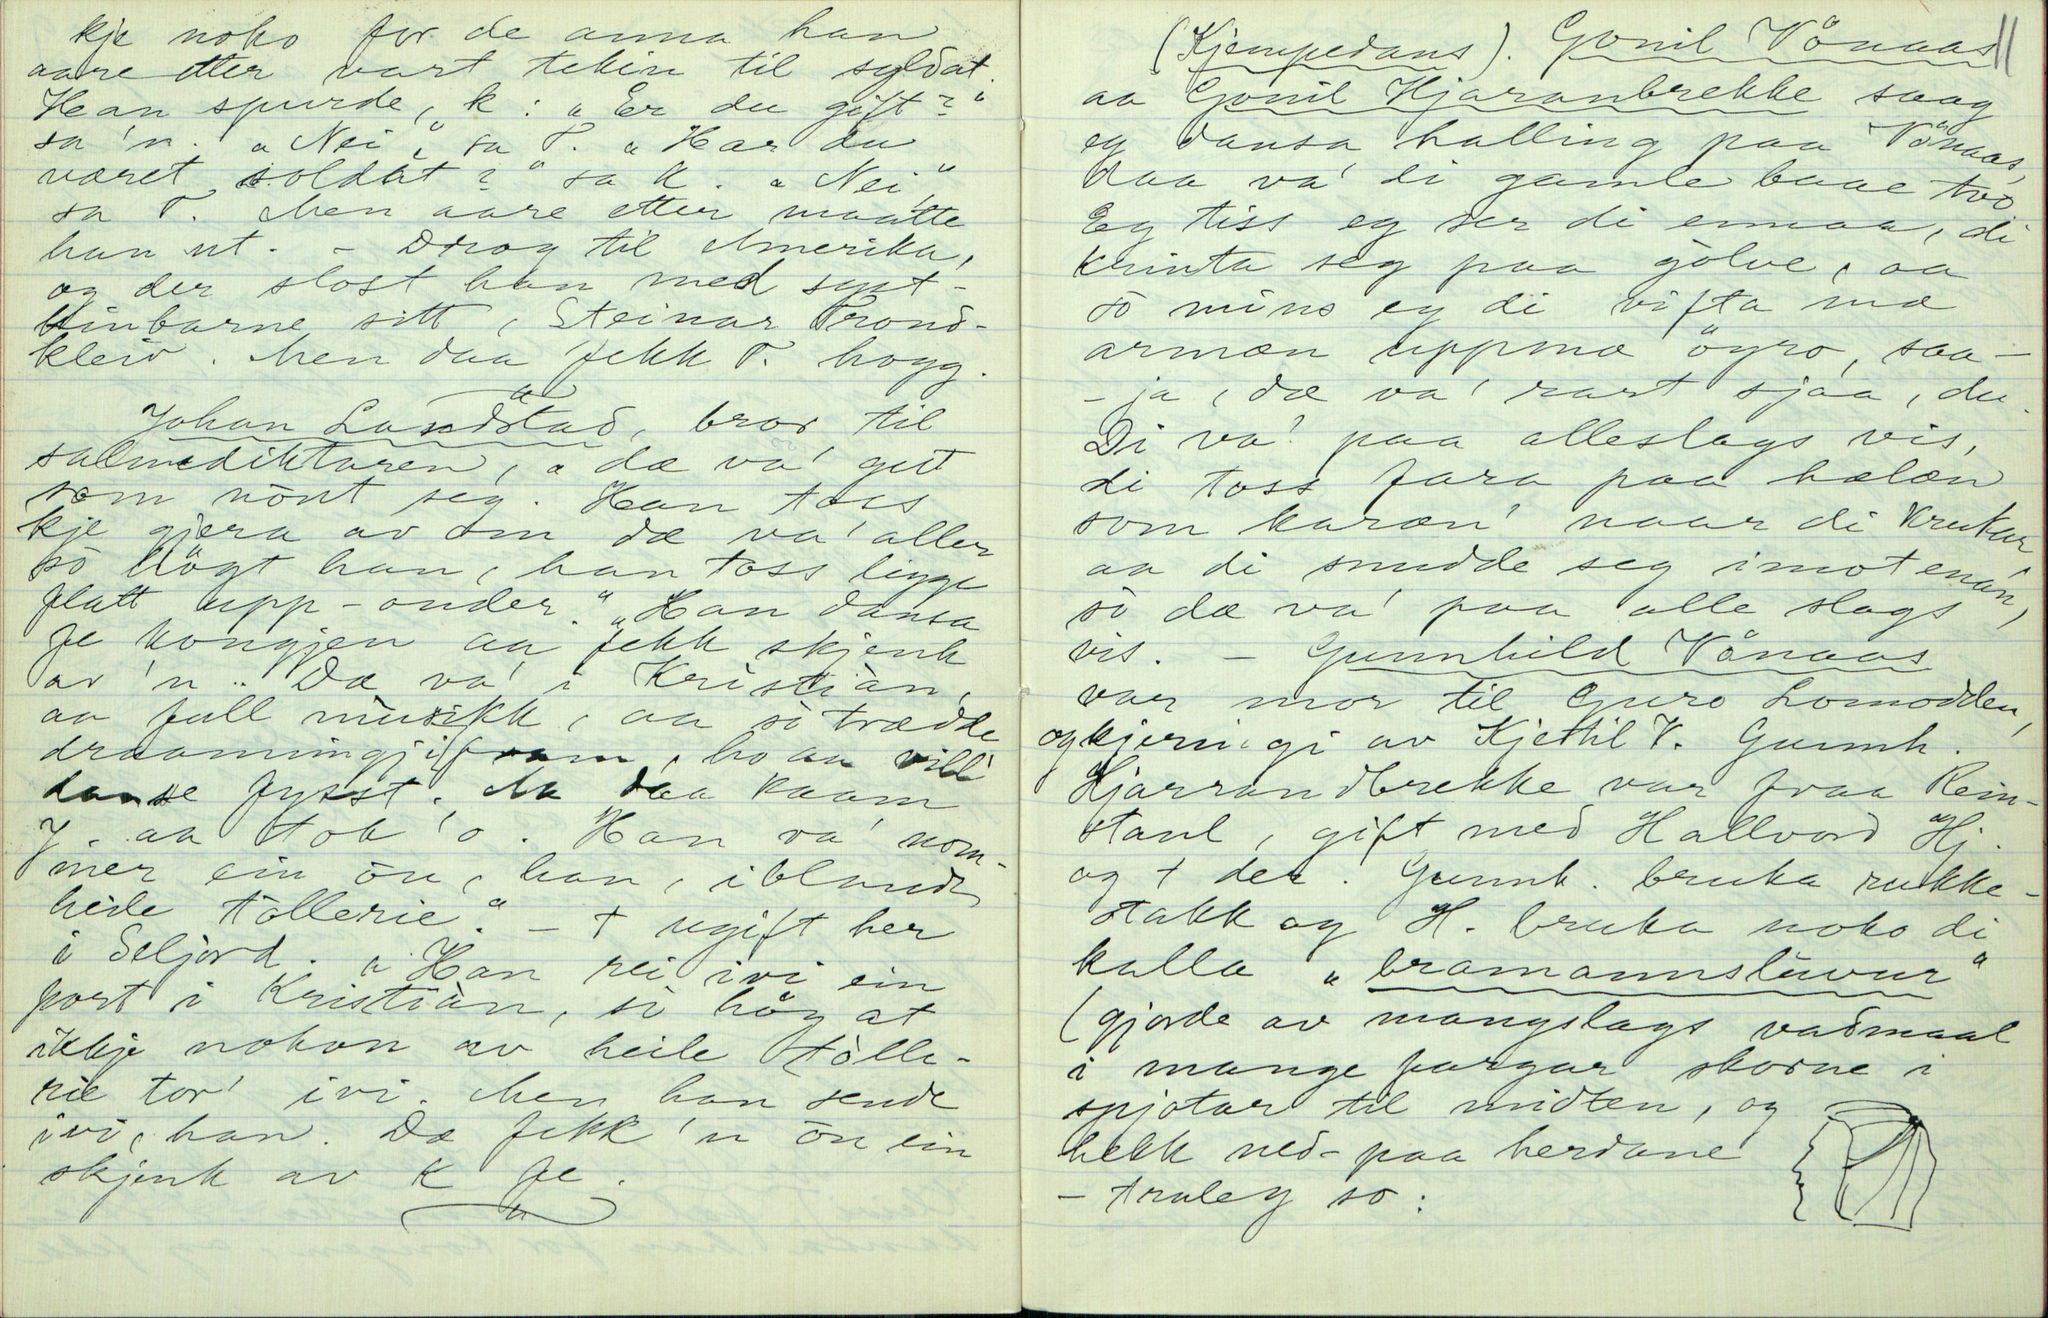 kje noko for de anna han
aare etter vart tekin til syldat.
Han spurde, k: „Er du gift?"
sa 'n. „Nei", sa T. „Har du
været soldat?" sa K. „Nei",
sa T. Men aare etter maatte
han ut. – Drog til Amerika,
og der slost han med syst-
kinbarne sitt, Steinar Trond-
kleiv. Men daa fekk T. hogg.
Johan Landstad, bror til
salmediktaren, „dæ va' gett
som nönt seg. Han toss
kje gjera av om dæ va' aller
so högt han, han toss ligge
flatt upp-onder." „Han dansa
fe kongjen aa fekk skjenk
av 'n. Dæ va' i Kristiàn,
aa full musikk, aa so trædde
draanningji fram, ho aa vill'
danse fysst. Mæ daa kaam
J. aa tok 'o. Han va' nom-
mer ein ön, han, iblandt
heile tollerie." – † ugift her
i Seljord. „Han rei ivi ein
port i Kristiàn, so hög at
ikkje nokon av heile tölle-
rie tor' ivi. Men han sende
ivi, han. Dæ fekk 'n ön ein
skjenk av K fe.
11
(Kjempedans). Gonil Vönaas
aa Gonil Hjaranbrekke saag
eg dansa halling paa Vönaas,
daa va' di gamle baae tvo
Eg tiss eg ser di ennaa, di
krinta seg paa gölve, aa
so mins eg di vifta mæ
armæn uppmæ öyro, saa –
– ja, dæ va' rart sjaa, du.
Di va' paa alleslags vis,
di toss fara paa hælæn
som karæn' naar di krukar
aa di snudde seg imot enân,
so dæ va' paa alle slags
vis. – Gunnhild Vönaas
var mor til Guro Lomodden,
og kjeringi av Kjettil V. Gunnh.
Hjarrandbrekke var fraa Rein-
staul, gift med Hallvord Hj.
og † der. Gunnh. bruka rukke-
stakk og H. bruka noko di
kalla „bramannslûvur"
(gjorde av mangslags vadmaal
i mange fargar skorne i
spjotar til midten, og
hekk ned-paa herdane
– truleg so: